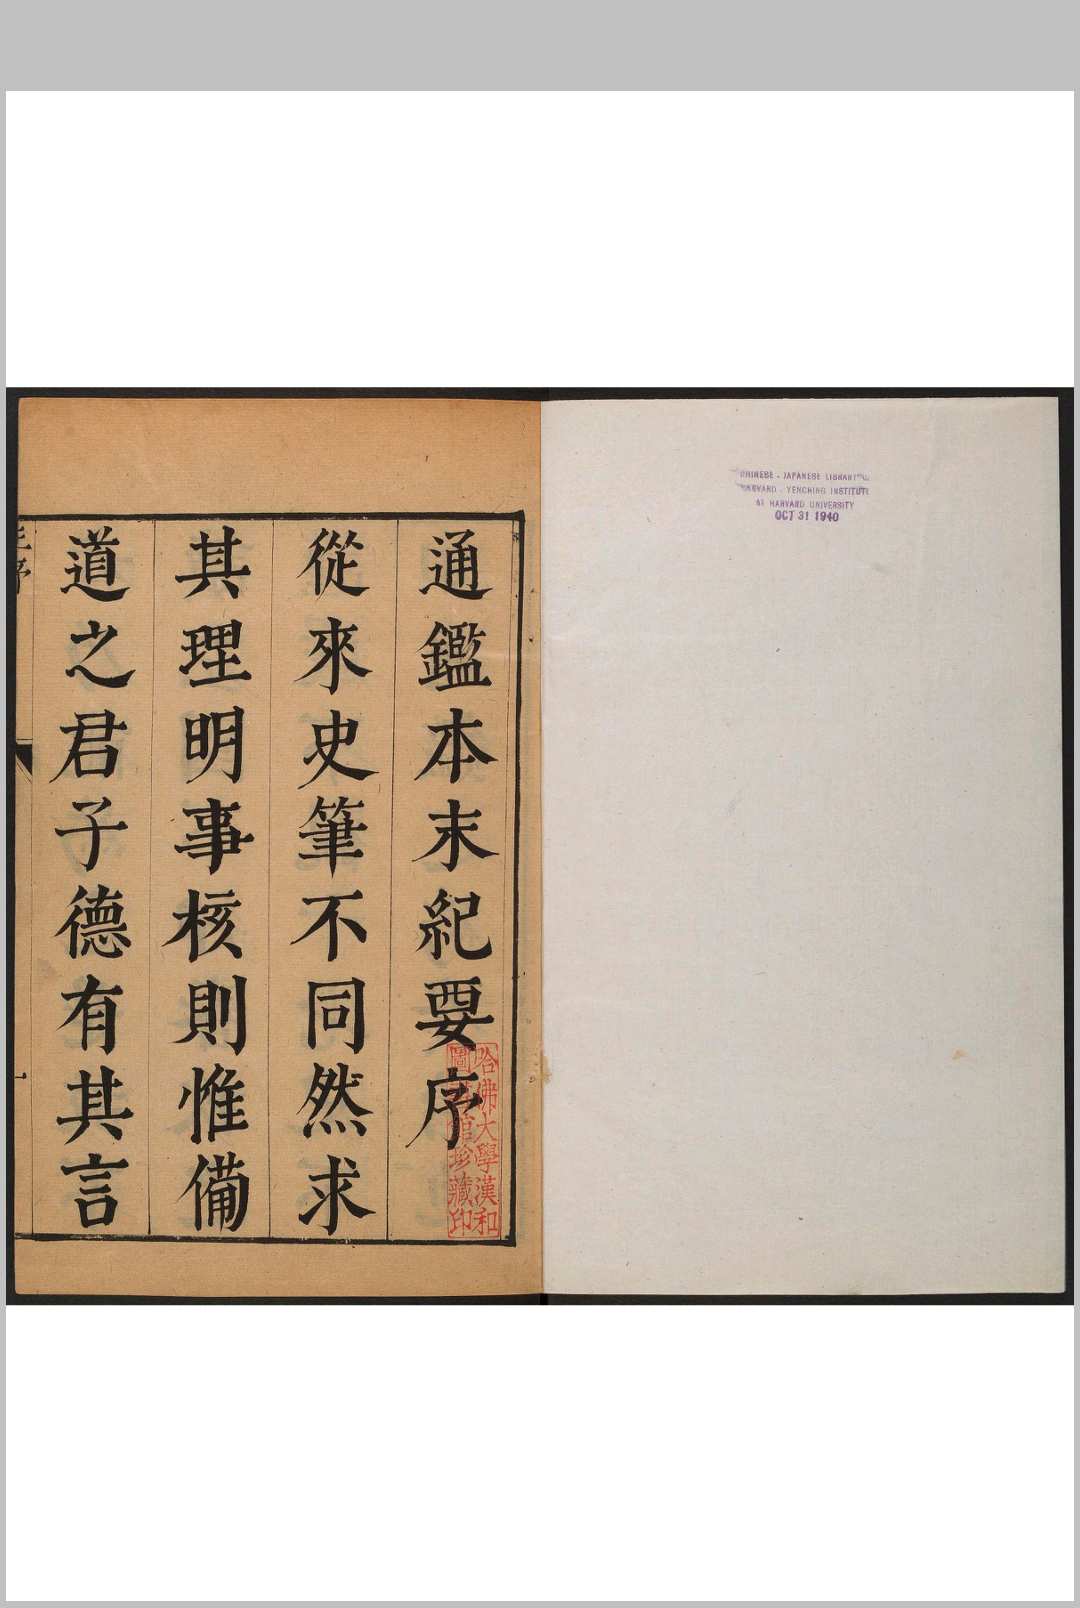 通鑑本末紀要序
從來史筆不同然求
其理明事核則惟備
道之君子德有其言
哈佛大學漢和
圖書館珍藏印
CHINESE - JAPANESE LIBRARY
HARVARD - YENCHING INSTITUTE
AT HARVARD UNIVERSITY
OCT 31 1940